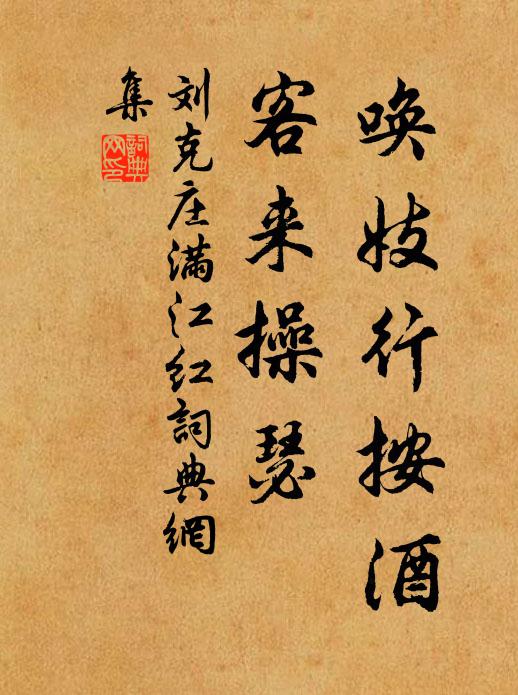 唤妓行按酒
客来操瑟
刘克庄满江红詞典網
集
詞典